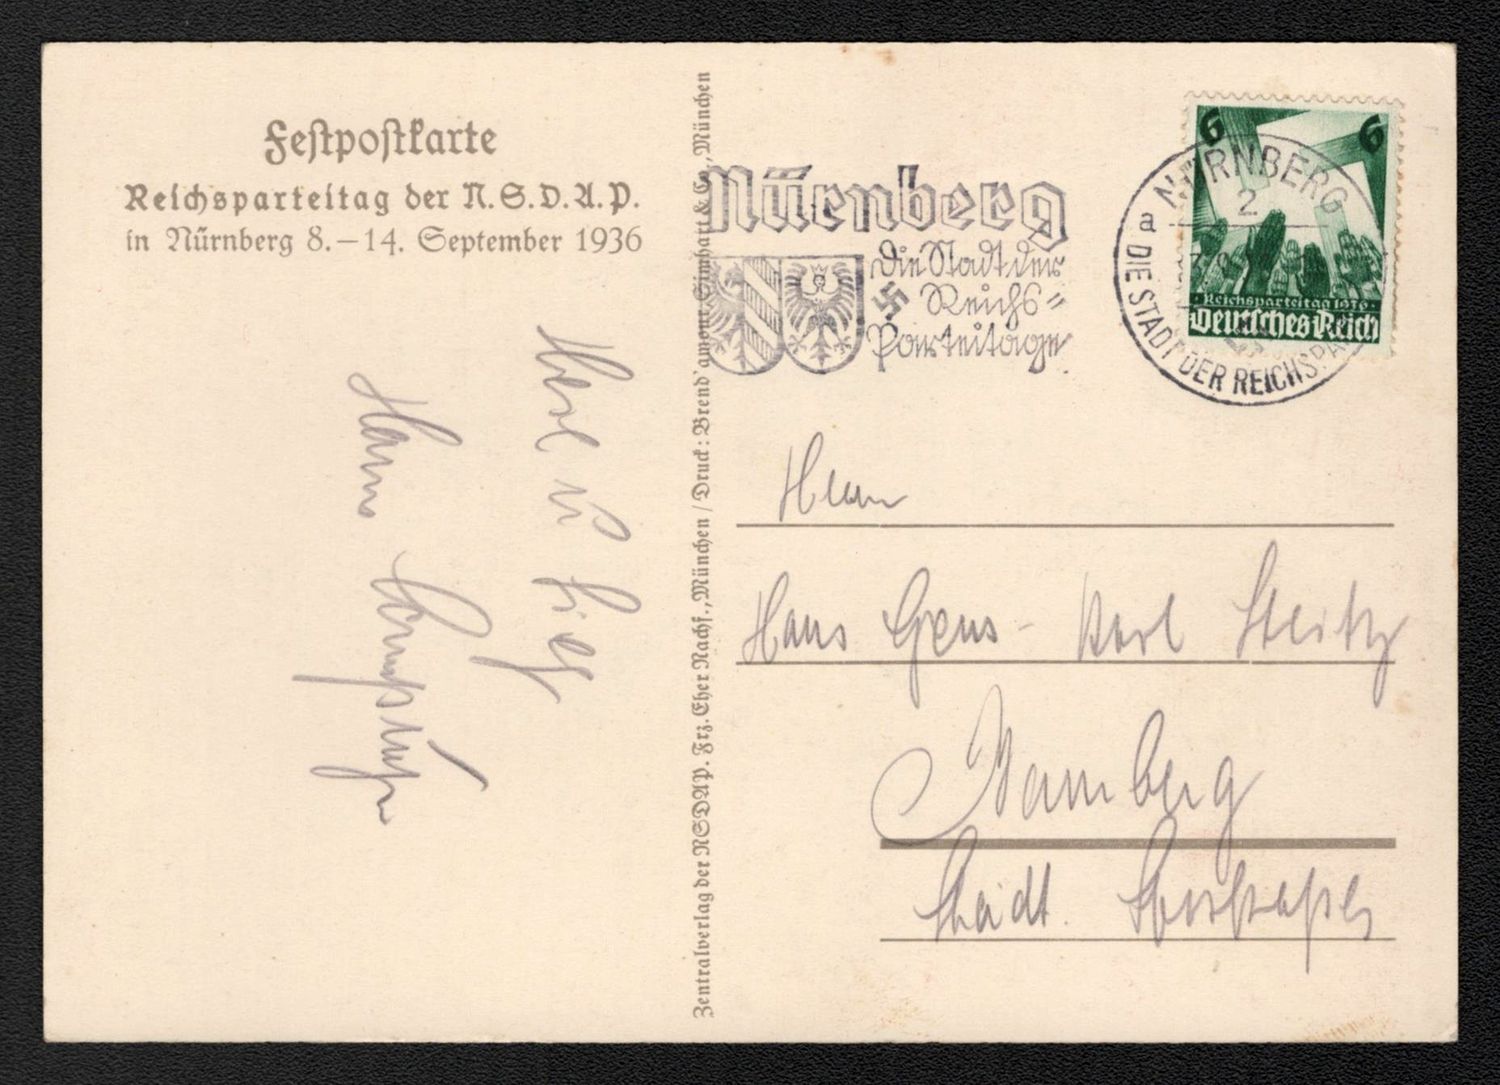 Festpostkarte
Reichsparteitag der N.S.D.A.P.
in Nürnberg 8.–14. September 1936
Hans
Zentralverlag der NSDAP. Frz. Eher Nachf., München / Druck: Brend'amour, Simhart & Co., München
Nürnberg
Die Stadt der
Reichs=
Parteitage
6 6
Reichsparteitag 1936
Deutsches Reich
NÜRNBERG
2
a
DIE STADT DER REICHSPA
Herrn
Hans Karl Steitz
Bamberg
Städt.